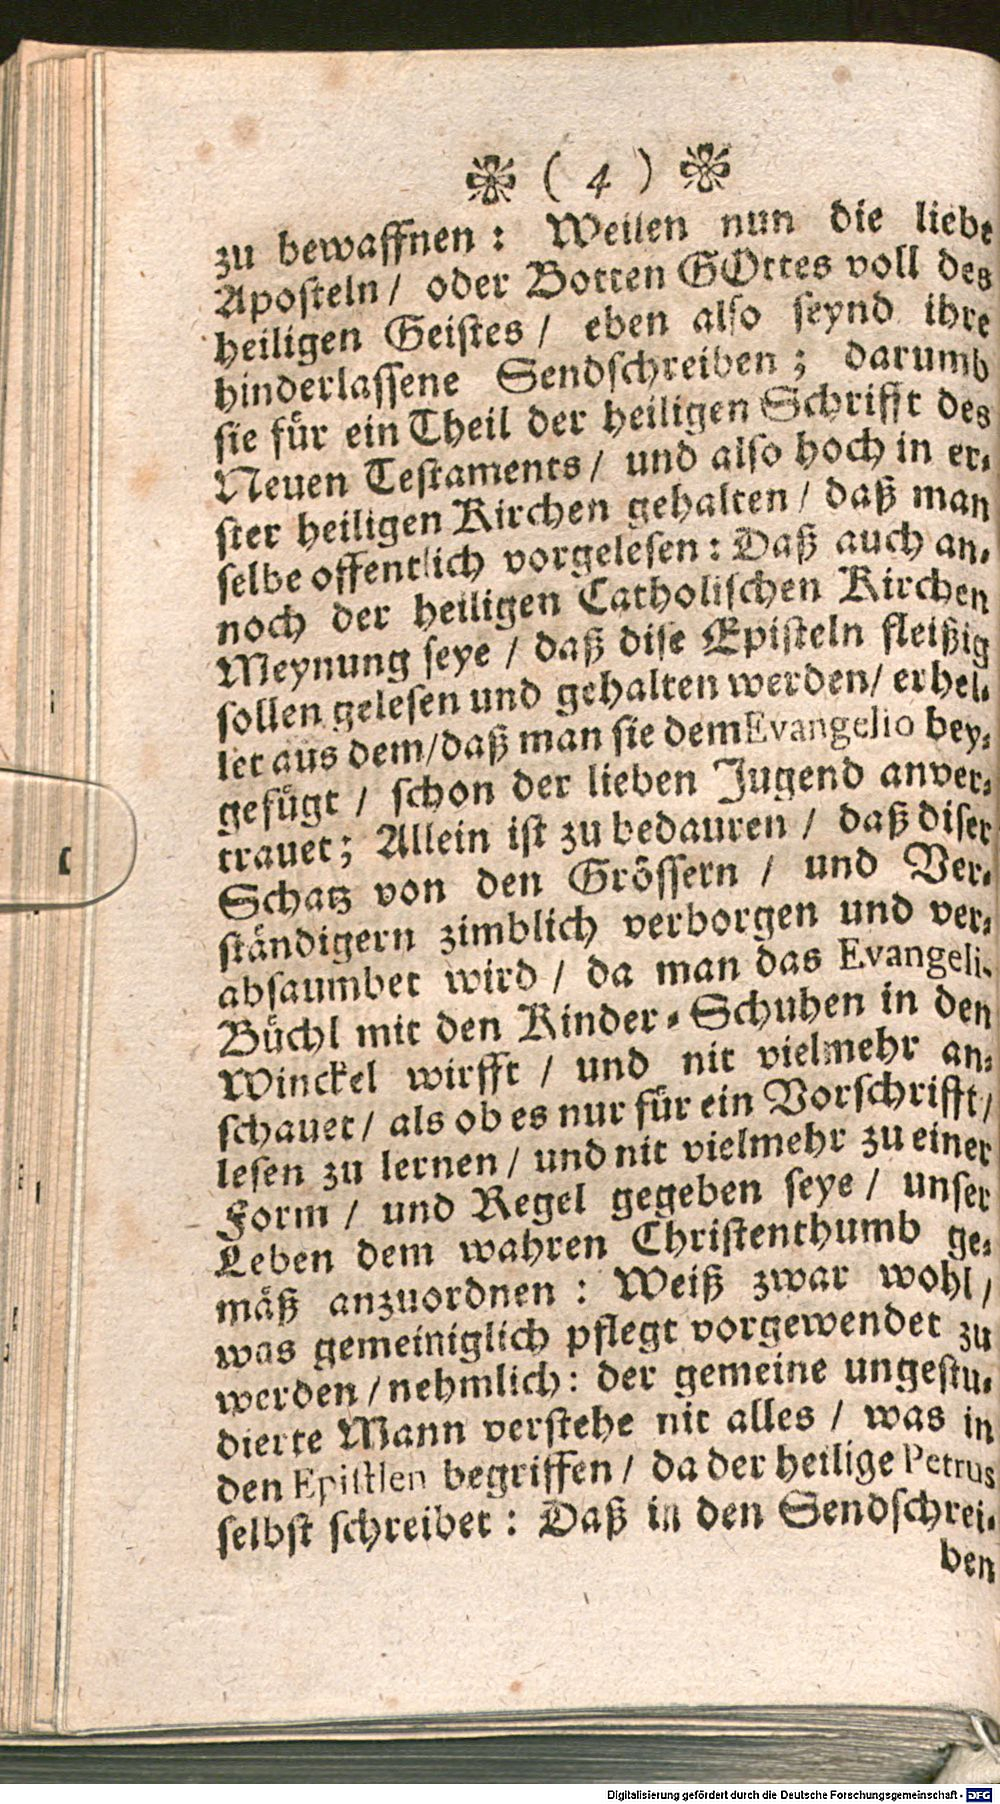 ( 4 )
zu bewaffnen: Weilen nun die liebe
Aposteln/ oder Botten GOttes voll des
heiligen Geistes/ eben also seynd ihre
hinderlassene Sendschreiben; darumb
sie für ein Theil der heiligen Schrifft des
Neuen Testaments/ und also hoch in er-
ster heiligen Kirchen gehalten/ daß man
selbe offentlich vorgelesen: Daß auch an-
noch der heiligen Catholischen Kirchen
Meynung seye/ daß dise Episteln fleißig
sollen gelesen und gehalten werden/ erhel-
let aus dem/daß man sie dem Evangelio bey-
gefügt/ schon der lieben Jugend anver-
trauet; Allein ist zu bedauren/ daß diser
Schatz von den Grössern/ und Ver-
ständigern zimblich verborgen und ver-
absaumbet wird/ da man das Evangeli-
Büchl mit den Kinder-Schuhen in den
Winckel wirfft/ und nit vielmehr an-
schauet/ als ob es nur für ein Vorschrifft/
lesen zu lernen/ und nit vielmehr zu einer
Form/ und Regel gegeben seye/ unser
Leben dem wahren Christenthumb ge-
mäß anzuordnen: Weiß zwar wohl/
was gemeiniglich pflegt vorgewendet zu
werden/nehmlich: der gemeine ungestu-
dierte Mann verstehe nit alles/ was in
den Epistlen begriffen/ da der heilige Petrus
selbst schreibet: Daß in den Sendschrei-
ben
Digitalisierung gefördert durch die Deutsche Forschungsgemeinschaft - DFG